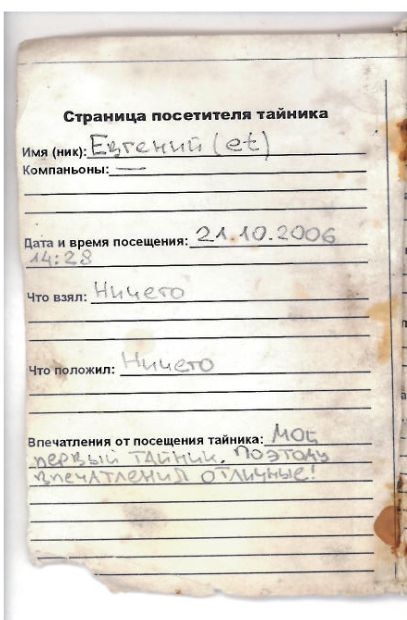 Страница посетителя тайника
Имя (ник): Евгений (et)
Компаньоны: —
Дата и время посещения: 21.10.2006
14:28
Что взял: Ничего
Что положил: Ничего
Впечатления от посещения тайника: Мой
первый тайник. Поэтому
впечатления отличные!